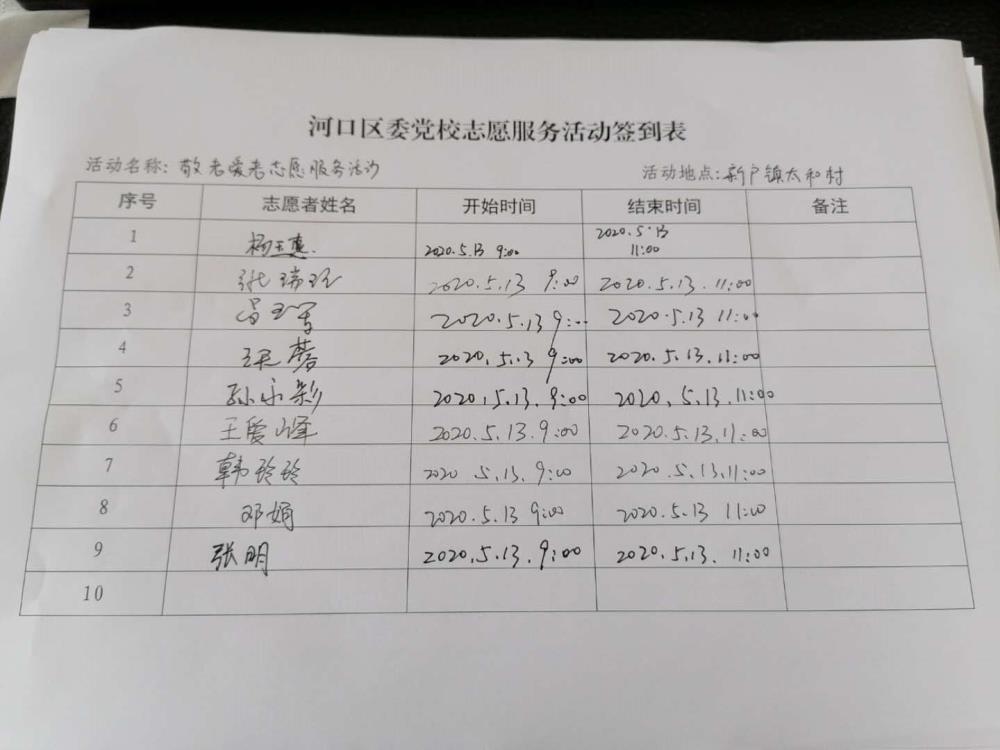 河口区委党校志愿服务活动签到表
活动名称：敬老爱老志愿服务活动 活动地点：新户镇太和村
序号 志愿者姓名 开始时间 结束时间 备注
1 杨玉惠 2020.5.13 9:00 2020.5.13 11:00
2 张瑞 2020.5.13 9:00 2020.5.13. 11:00
3 2020.5.13 9:00 2020.5.13 11:00
4 2020.5.13 9:00 2020.5.13.11:00
5 孙永彩 2020.5.13.9:00 2020.5.13.11:00
6 王爱峰 2020.5.13.9:00 2020.5.13.11:00
7 韩玲玲 2020 5.13.9:00 2020.5.13.11:00
8 邓娟 2020.5.13 9:00 2020.5.13 11:00
9 张明 2020.5.13.9:00 2020.5.13. 11:00
10